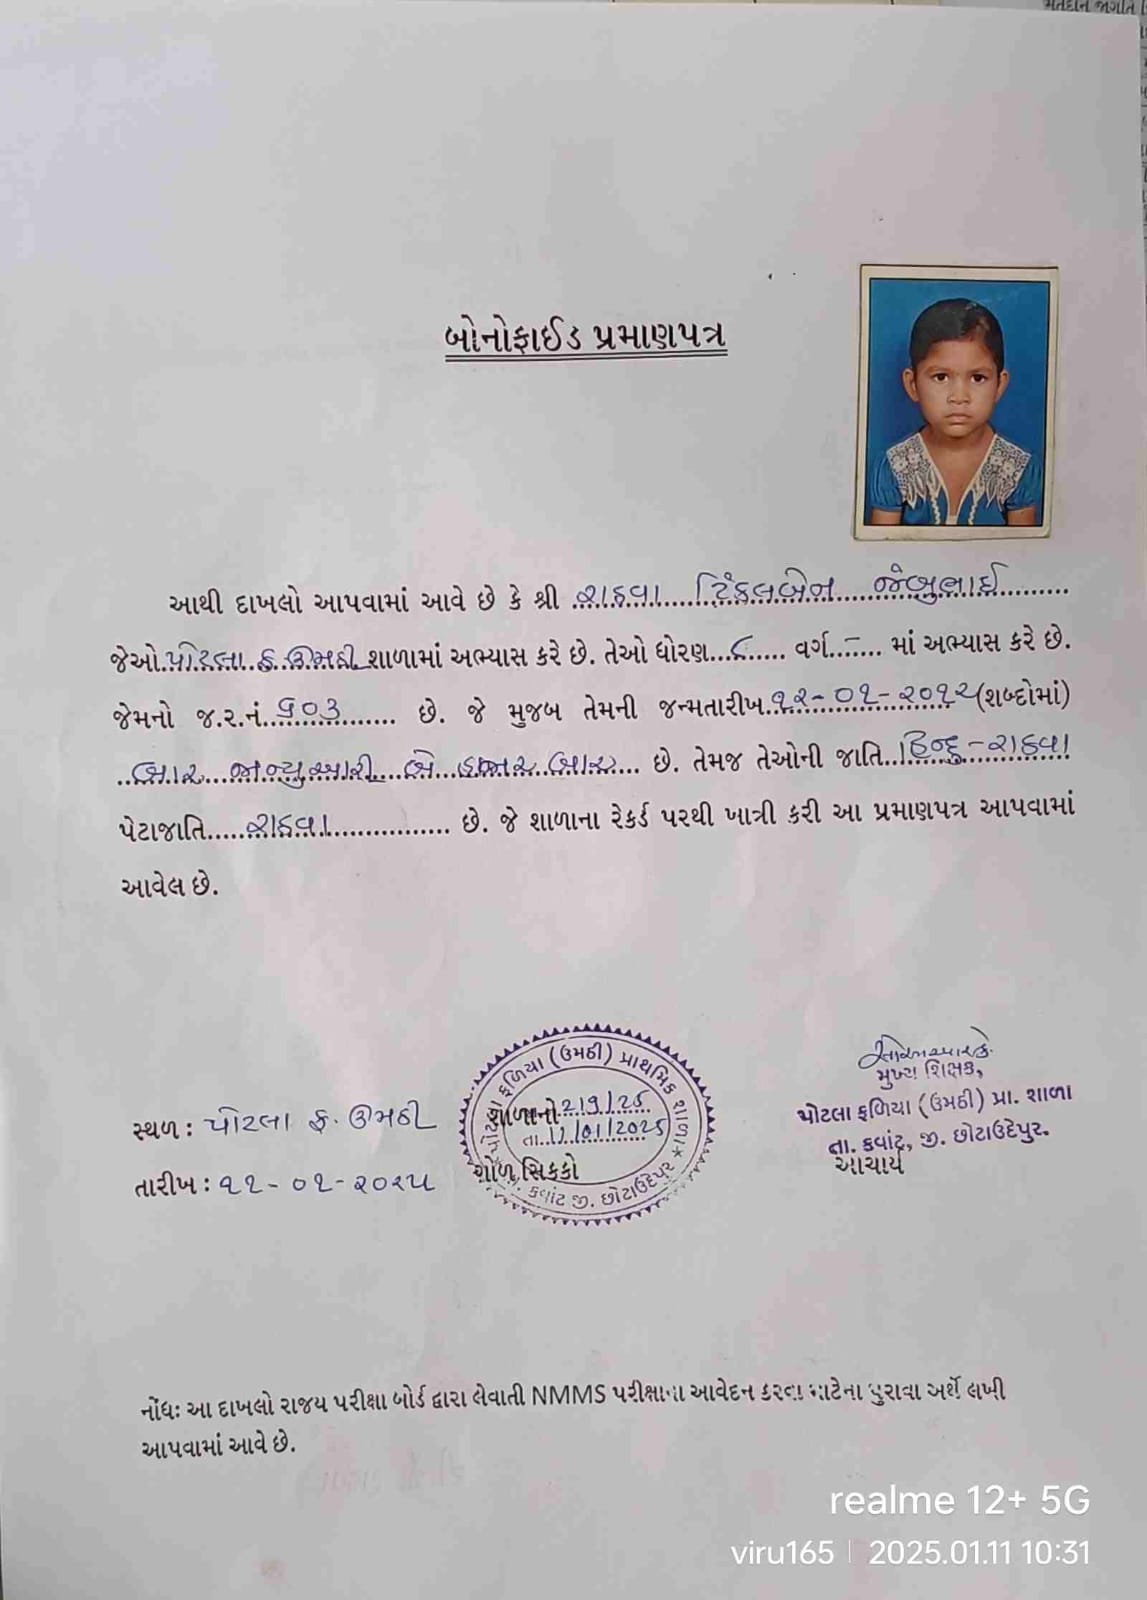 બોનોફાઈડ પ્રમાણપત્ર
આથી દાખલો આપવામાં આવે છે કે શ્રી રાઠવા ટિંકલબેન જેંબુભાઈ
જેઓ પોટલા ફ. ઉમઠી શાળામાં અભ્યાસ કરે છે. તેઓ ધોરણ ૮ વર્ગ - માં અભ્યાસ કરે છે.
જેમનો જ.ર.નં. ૬૦૩ છે. જે મુજબ તેમની જન્મતારીખ ૧૨-૦૧-૨૦૧૨ (શબ્દોમાં)
બાર જાન્યુઆરી બે હજાર બાર છે. તેમજ તેઓની જાતિ હિન્દુ - રાઠવા
પેટાજાતિ રાઠવા છે. જે શાળાના રેકર્ડ પરથી ખાત્રી કરી આ પ્રમાણપત્ર આપવામાં
આવેલ છે.
મુખ્ય શિક્ષક,
પોટલા ફળિયા (ઉમઠી) પ્રા. શાળા
તા. કવાંટ, જી. છોટાઉદેપુર.
આચાર્ય
પોટલા ફળિયા (ઉમઠી) પ્રાથમિક શાળા
શાળાનો
તા. 11/01/2025
ગોળ સિક્કો
કવાંટ જી. છોટાઉદેપુર
સ્થળ : પોટલા ફ. ઉમઠી
તારીખ : ૧૧-૦૧-૨૦૨૫
નોંધઃ આ દાખલો રાજય પરીક્ષા બોર્ડ દ્વારા લેવાતી NMMS પરીક્ષાના આવેદન કરવા માટેના પુરાવા અર્થે લખી
આપવામાં આવે છે.
realme 12+ 5G
viru165 | 2025.01.11 10:31